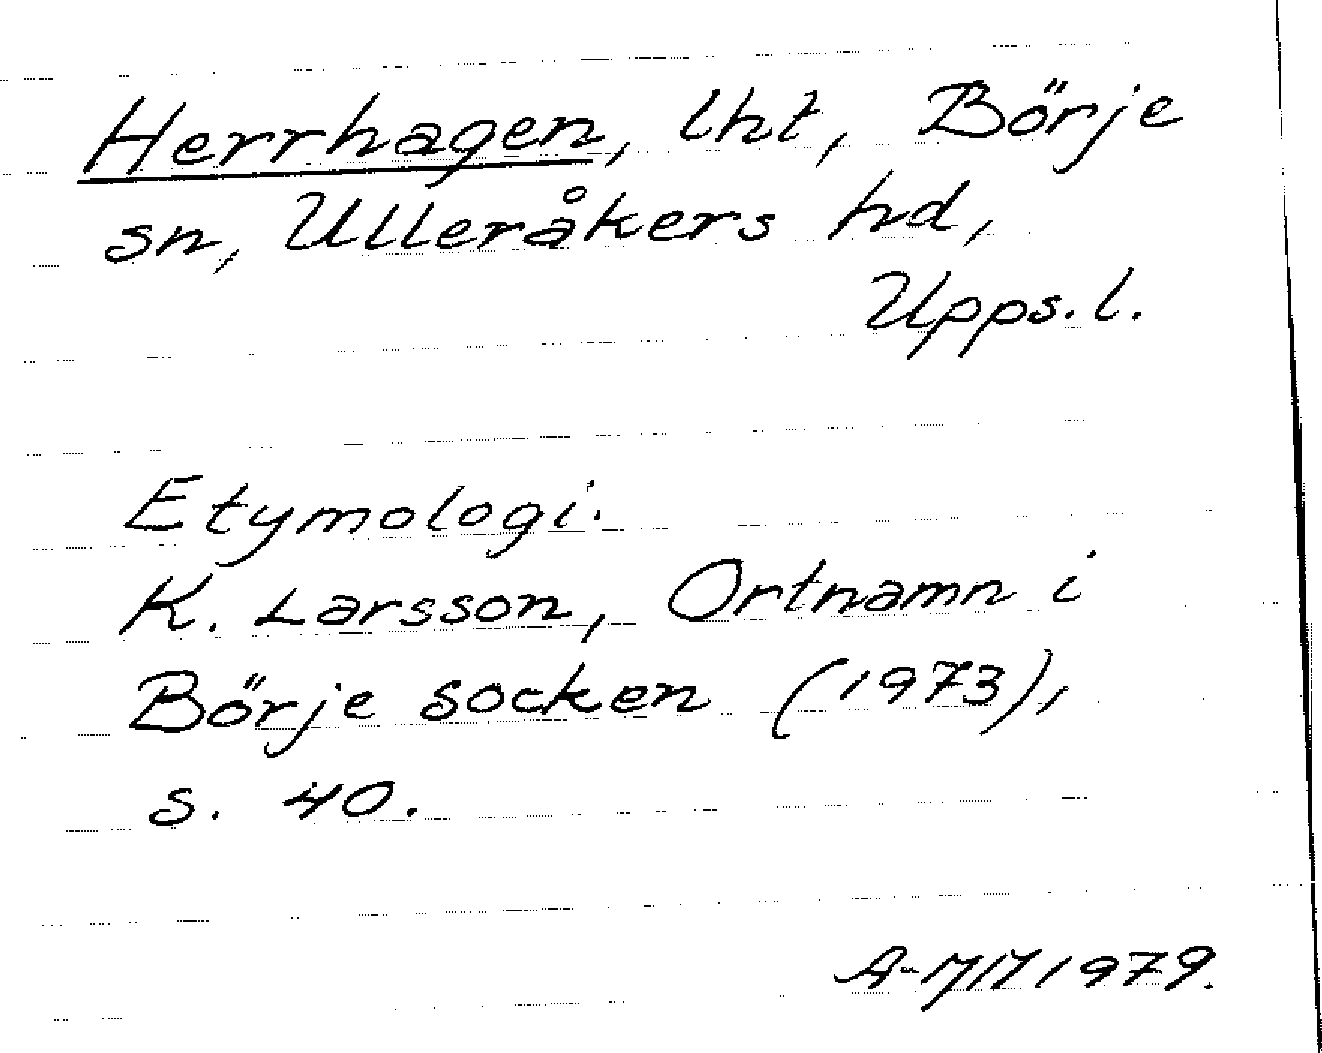 Herrhagen, lht, Börje
sn, Ulleråkers hd,
Upps. l.
Etymologi.
K. Larsson, Ortnamn i
Börje socken (1973),
s. 40.
A-MM 1979.